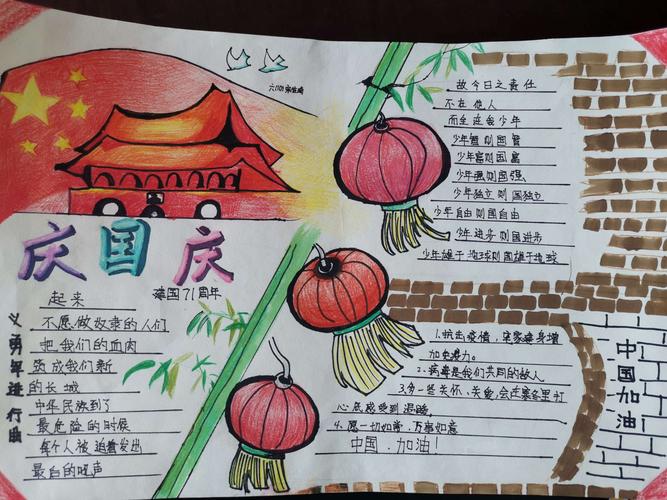 庆国庆
建国71周年
义勇军进行曲
起来
不愿做奴隶的人们
把我们的血肉
筑成我们新
的长城
中华民族到了
最危险的时候
每个人被迫着发出
最后的吼声
故今日之责任
不在他人
而全在我少年
少年智则国智
少年富则国富
少年强则国强
少年独立则国独立
少年自由则国自由
少年进步则国进步
少年雄于地球则国雄于地球
1.抗击疫情，健身增
加免疫力。
2.病毒是我们共同的敌人
3.多一些关怀，关爱，会在寒冬里打
心底感受到温暖。
4.愿一切如意，万事如意
中国.加油！
中国加油！